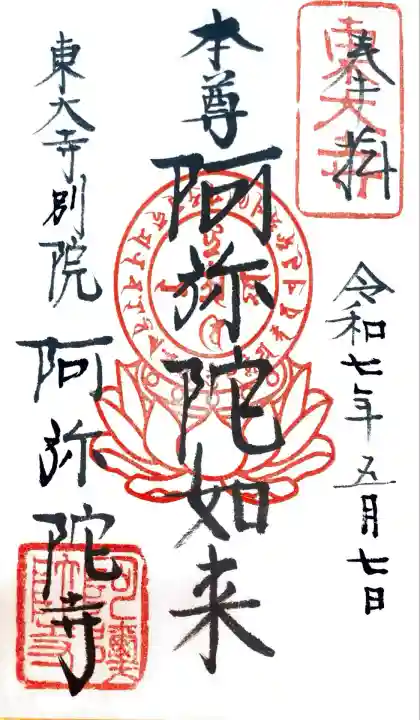 奉拝
東大寺
令和七年五月七日
本尊 阿弥陀如来
東大寺別院 阿弥陀寺